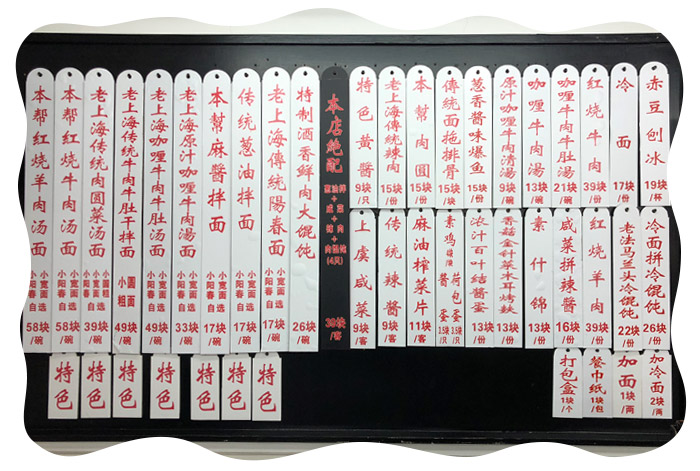 本帮红烧羊肉汤面 小阳春 小宽面 自选 58块/碗
本帮红烧牛肉汤面 小阳春 小宽面 自选 58块/碗
老上海传统肉圆菜汤面 小阳春 小宽面 自选 39块/碗
老上海传统牛肉牛肚干拌面 小圆粗面 49块/碗
老上海咖喱牛肉牛肚汤面 小阳春 小宽面 自选 49块/碗
老上海原汁咖喱牛肉汤面 小阳春 小宽面 自选 33块/碗
本幫麻醬拌面 小阳春 小宽面 自选 17块/碗
传统葱油拌面 小阳春 小宽面 自选 17块/碗
老上海傳統陽春面 小阳春 小宽面 自选 17块/碗
特制酒香鲜肉大馄饨 26块/碗
本店绝配 + + + (4只) 39块/客
特色黄醬 9块/只
老上海傳統辣肉 15块/份
本幫肉圓 15块/只
傳統面拖排骨 15块/块
葱香醬味爆鱼 15块/份
原汁咖喱牛肉清湯 9块/碗
咖喱牛肉湯 13块/碗
咖喱牛肉牛肚湯 21块/碗
红烧牛肉 39块/份
冷面 17块/份
赤豆刨冰 19块/杯
上虞咸菜 9块/客
传统辣醬 9块/客
麻油榨菜片 11块/客
素鸡 醬蛋 荷包蛋
浓汁百叶结醬蛋 13块/份
香菇金针菜木耳烤麸 13块/份
素什锦 13块/份
咸菜拼辣醬 16块/份
红烧羊肉 39块/份
老法马兰头冷馄饨 22块/份
冷面拼冷馄饨 26块/份
特色
特色
特色
特色
特色
特色
特色
打包盒 1块/个
餐巾纸 1块/包
加面 1块/两
加冷面 2块/两